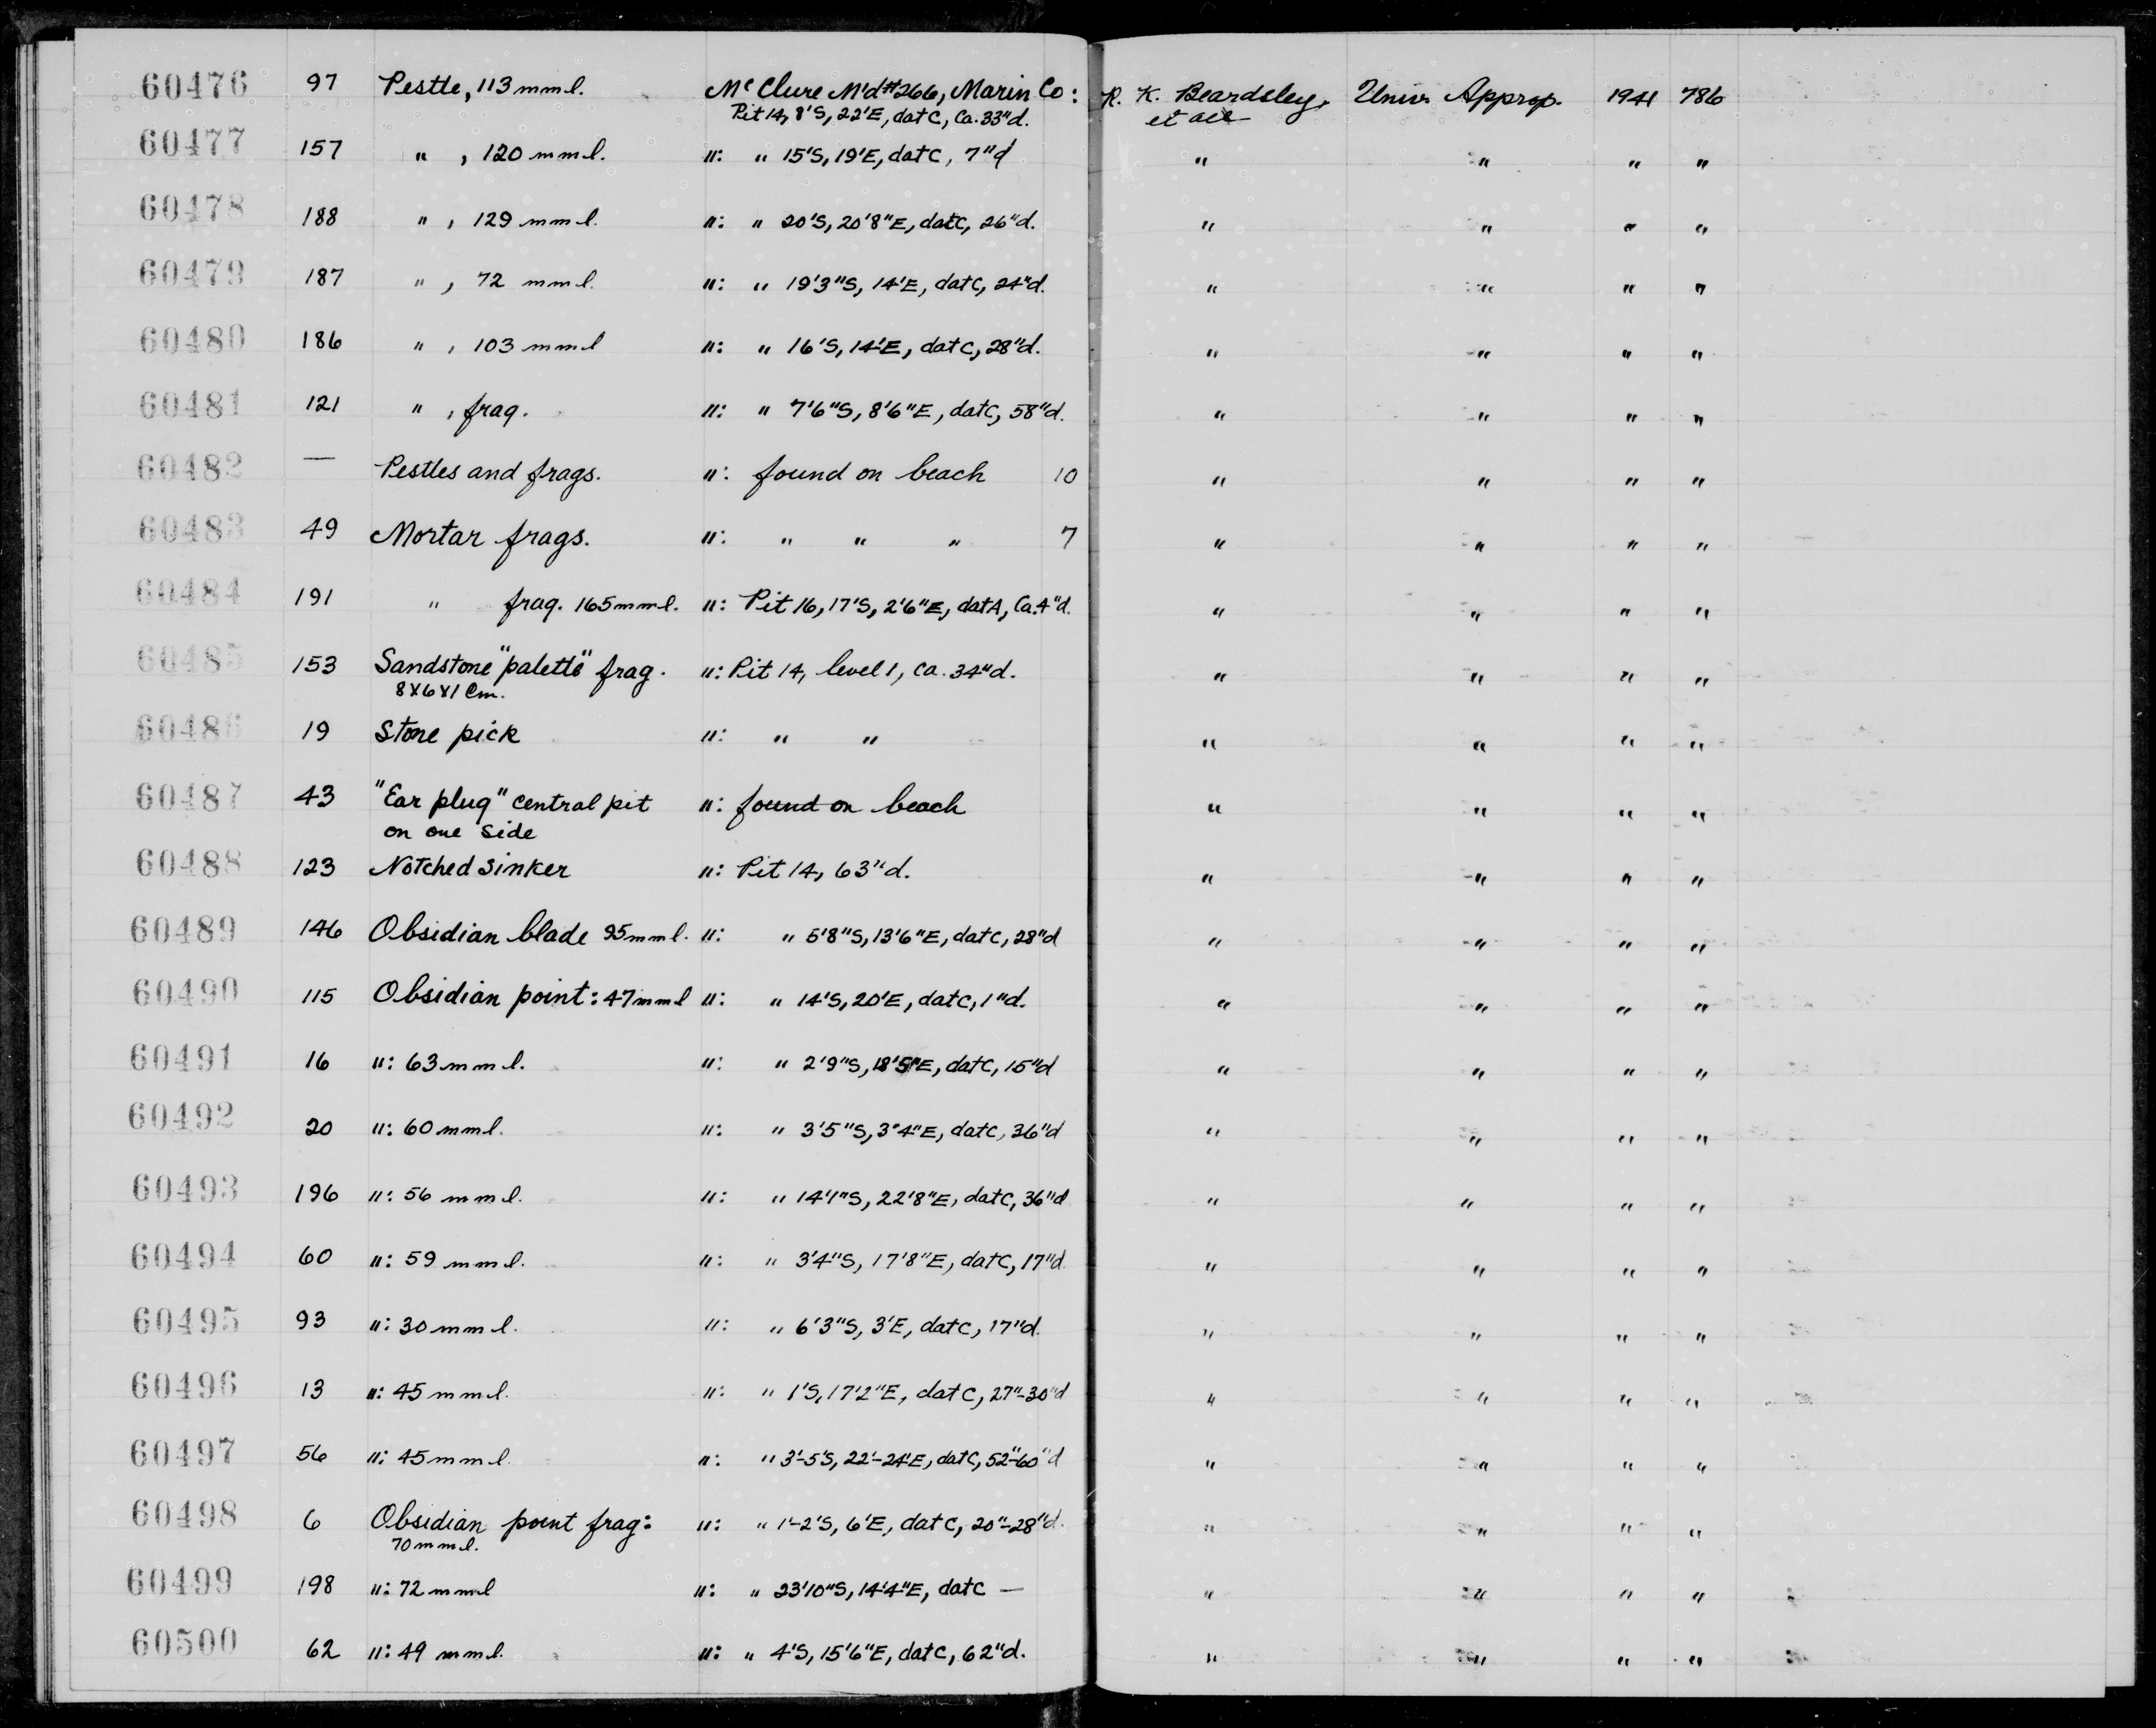 60476 97 Pestle, 113 mm l. McClure M'd #266, Marin Co: R. K. Beardsley, Univ. Approp. 1941 786
Pit 14, 8'S, 22'E, dat C, Ca. 33"d. et al
60477 157 " , 120 mm l. ": " 15'S, 19'E, dat C, 7"d " " " "
60478 188 " , 129 mm l. ": " 20'S, 20'8"E, dat C, 26"d. " " " "
60479 187 " , 72 mm l. ": " 19'3"S, 14'E, dat C, 24"d. " " " "
60480 186 " , 103 mm l ": " 16'S, 14'E, dat C, 28"d. " " " "
60481 121 " , frag. ": " 7'6"S, 8'6"E, dat C, 58"d. " " " "
60482 — Pestles and frags. ": found on beach 10 " " " "
60483 49 Mortar frags. ": " " " 7 " " " "
60484 191 " frag. 165 mm l. ": Pit 16, 17'S, 2'6"E, dat A, Ca. 4"d. " " " "
60485 153 Sandstone "palette" frag. ": Pit 14, level 1, ca. 34"d. " " " "
8x6x1 cm.
60486 19 Stone pick ": " " " " " "
60487 43 "Ear plug" central pit ": found on beach " " " "
on one side
60488 123 Notched sinker ": Pit 14, 63"d. " " " "
60489 146 Obsidian blade 95 mm l. ": " 5'8"S, 13'6"E, dat C, 28"d " " " "
60490 115 Obsidian point: 47 mm l ": " 14'S, 20'E, dat C, 1"d. " " " "
60491 16 ": 63 mm l. ": " 2'9"S, 18'5"E, dat C, 15"d " " " "
60492 20 ": 60 mm l. ": " 3'5"S, 3'4"E, dat C, 36"d " " " "
60493 196 ": 56 mm l. ": " 14'1"S, 22'8"E, dat C, 36"d " " " "
60494 60 ": 59 mm l. ": " 3'4"S, 17'8"E, dat C, 17"d " " " "
60495 93 ": 30 mm l. ": " 6'3"S, 3'E, dat C, 17"d. " " " "
60496 13 ": 45 mm l. ": " 1'S, 17'2"E, dat C, 27"-30"d " " " "
60497 56 ": 45 mm l. ": " 3'-5'S, 22'-24'E, dat C, 52"-60"d " " " "
60498 6 Obsidian point frag: ": " 1'-2'S, 6'E, dat C, 20"-28"d. " " " "
70 mm l.
60499 198 ": 72 mm l ": " 23'10"S, 14'4"E, dat C — " " " "
60500 62 ": 49 mm l. ": " 4'S, 15'6"E, dat C, 62"d. " " " "